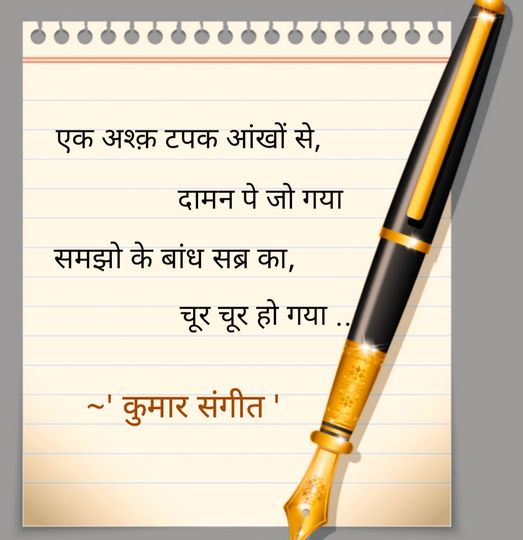 एक अश्क़ टपक आंखों से,
दामन पे जो गया
समझो के बांध सब्र का,
चूर चूर हो गया ..
~' कुमार संगीत '